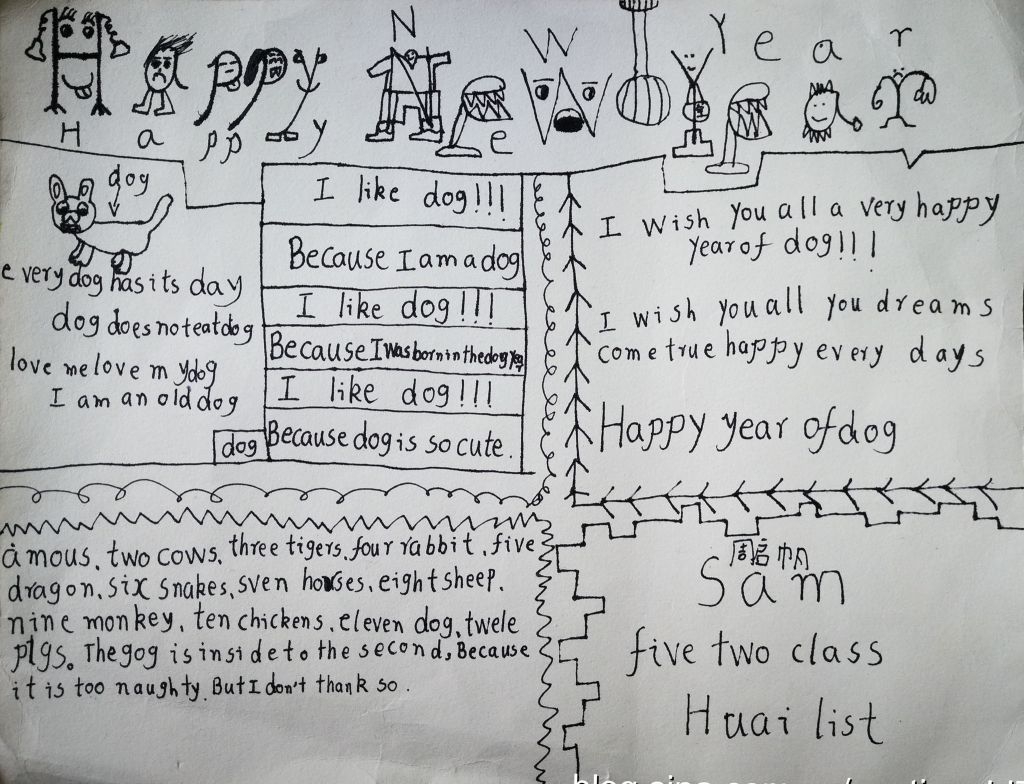 Happy New Year
dog
every dog has its day
dog does not eat dog
love me love my dog
I am an old dog
dog
I like dog!!!
Because I am a dog
I like dog!!!
Because I was born in the dog year
I like dog!!!
Because dog is so cute.
I wish you all a very happy
year of dog!!!
I wish you all you dreams
come true happy every days
Happy year of dog
a mous, two cows, three tigers, four rabbit, five
dragon, six snakes, sven horses, eight sheep,
nine monkey, ten chickens, eleven dog, twele
pigs. The gog is inside to the second, Because
it is too naughty. But I don't thank so.
周启帆
Sam
five two class
Huai list